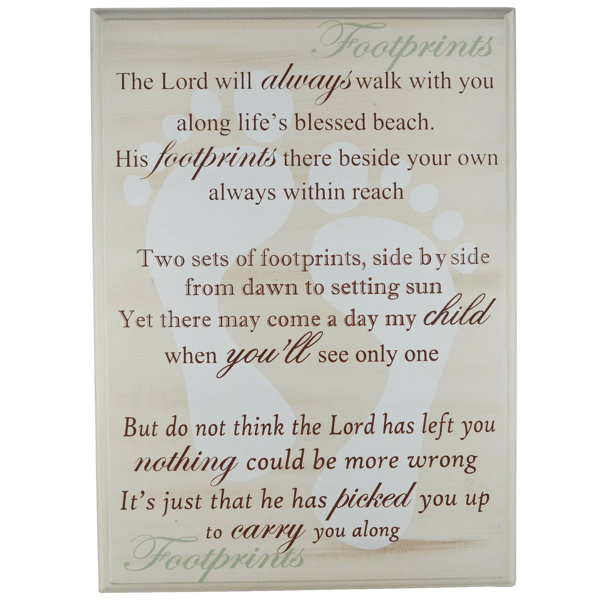 Footprints
The Lord will always walk with you
along life's blessed beach.
His footprints there beside your own
always within reach
Two sets of footprints, side by side
from dawn to setting sun
Yet there may come a day my child
when you'll see only one
But do not think the Lord has left you
nothing could be more wrong
It's just that he has picked you up
to carry you along
Footprints